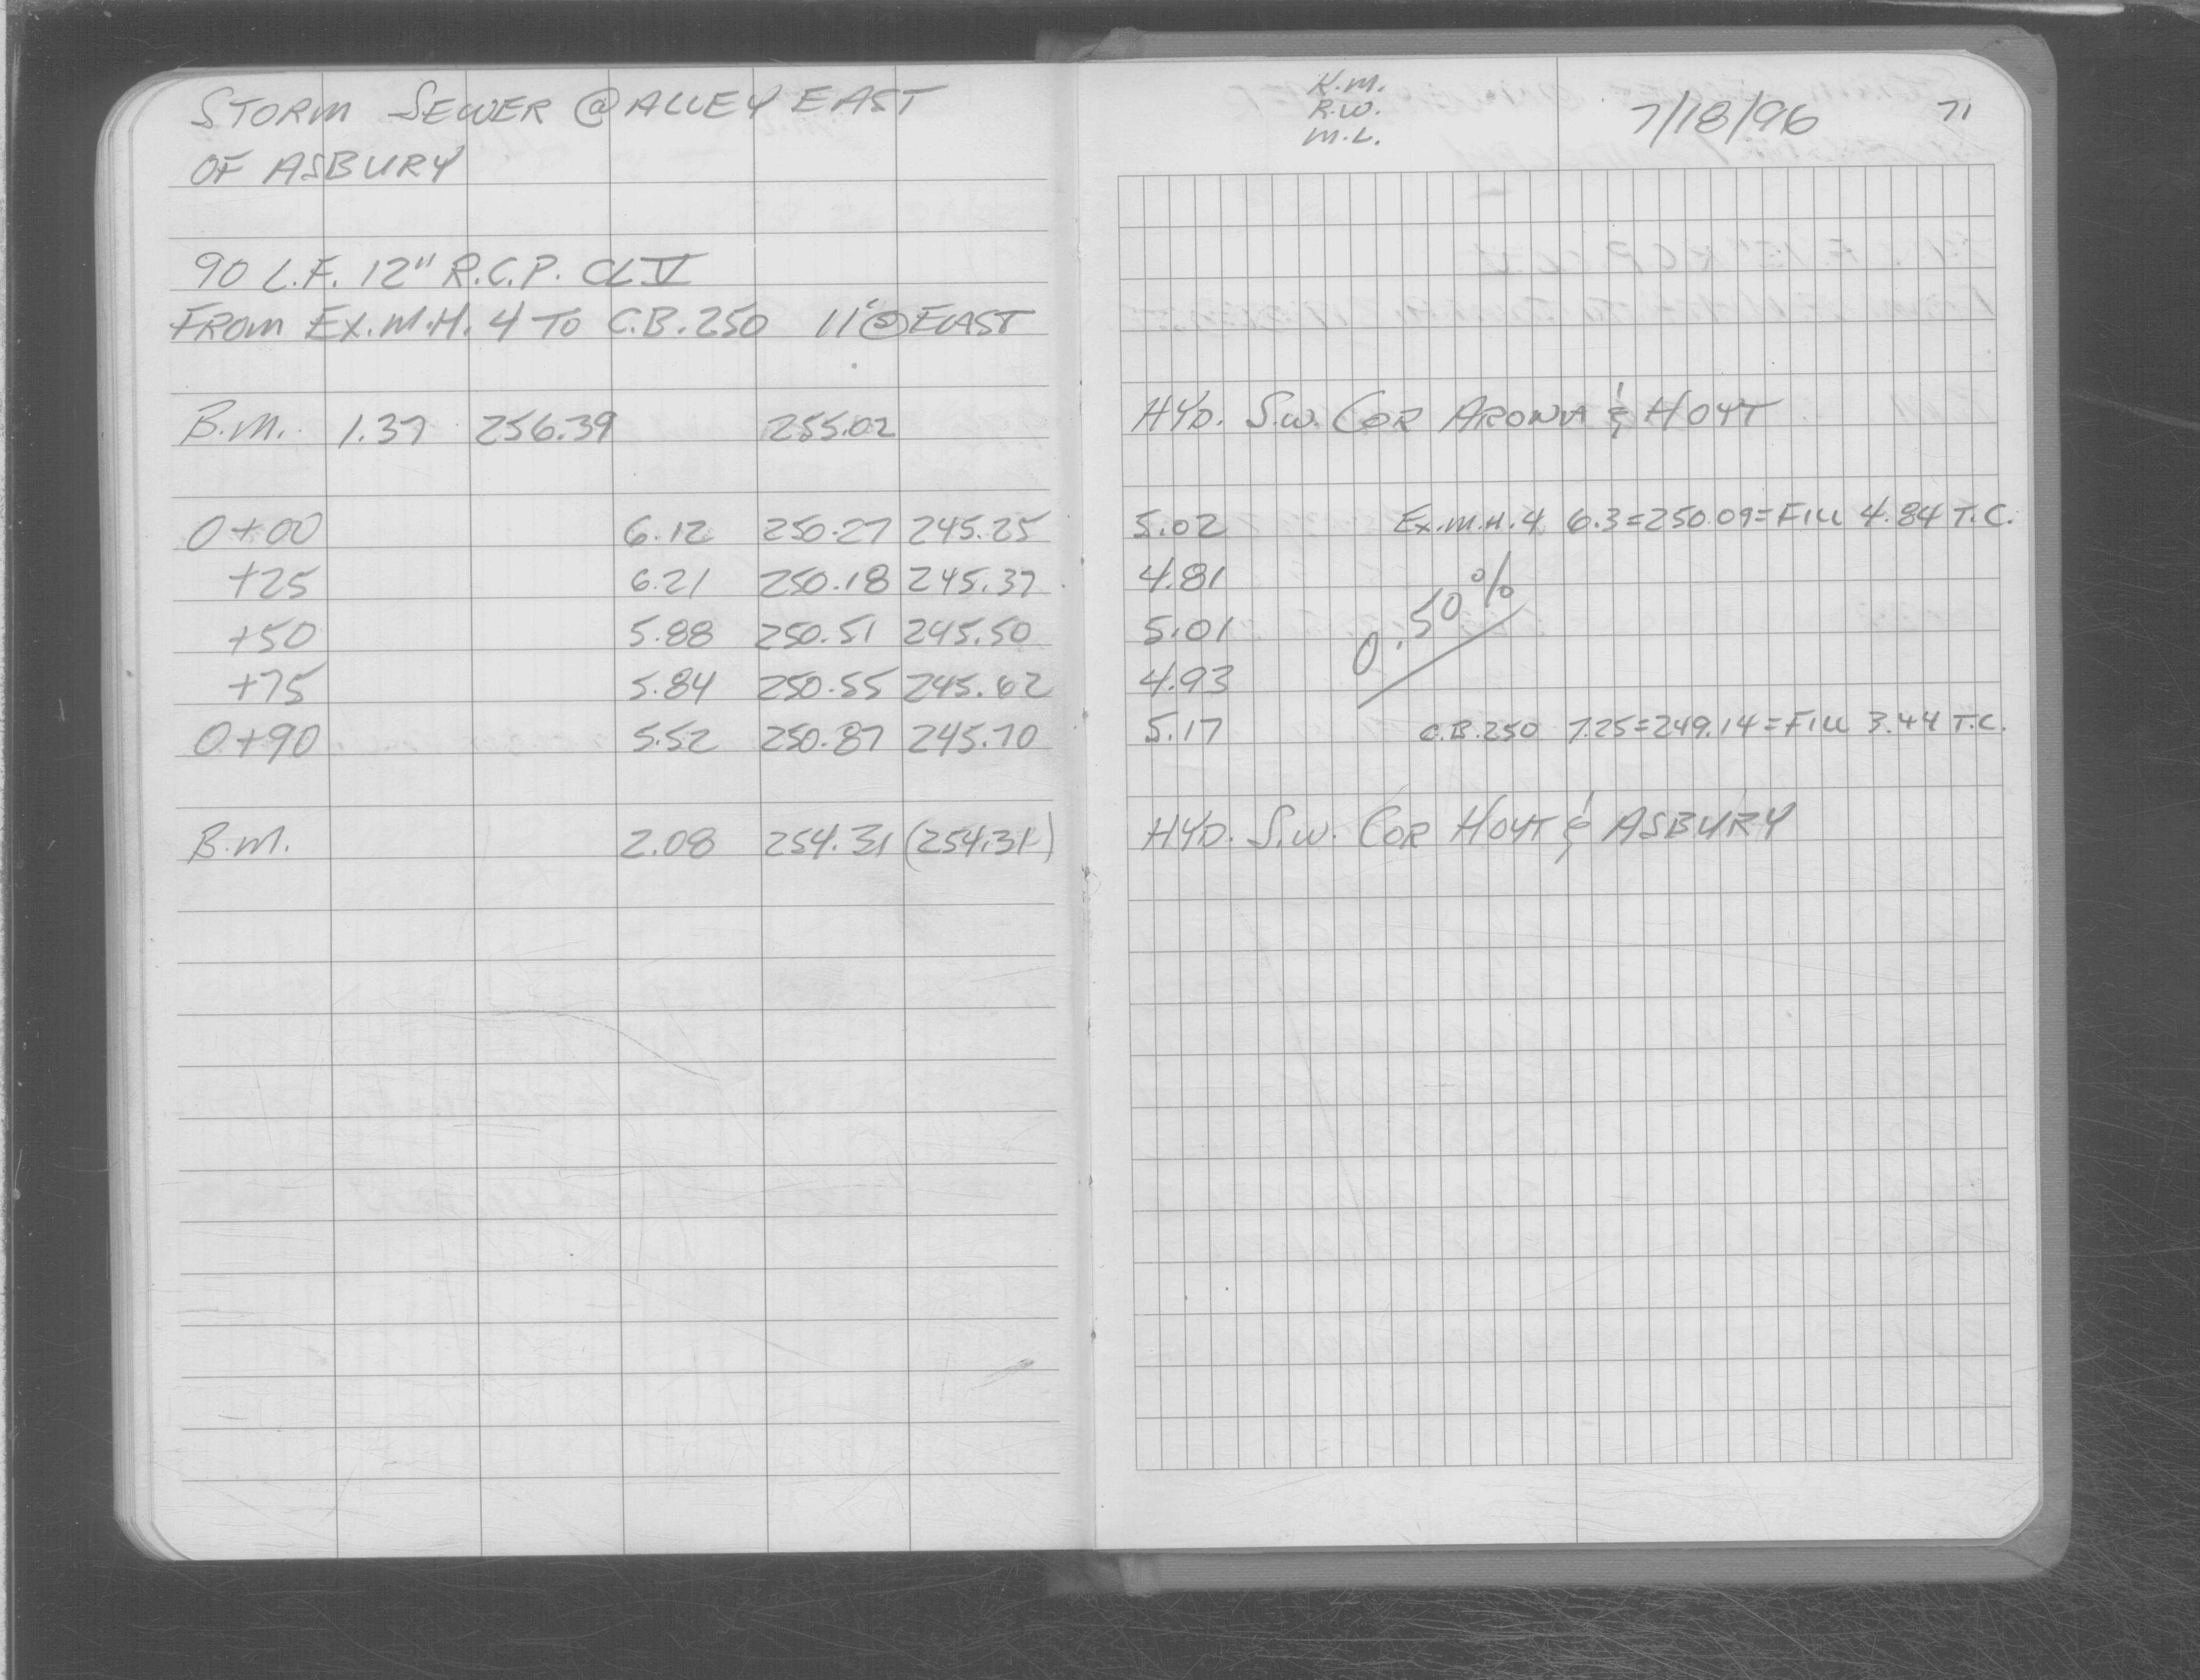 STORM SEWER @ ALLEY EAST
OF ASBURY
90 L.F. 12" R.C.P. CL V
FROM EX. M.H. 4 TO C.B. 250 11' @ EAST
B.M. 1.37 256.39 255.02
0+00 6.12 250.27 245.25
+25 6.21 250.18 245.37
+50 5.88 250.51 245.50
+75 5.84 250.55 245.62
0+90 5.52 250.87 245.70
B.M. 2.08 254.31 (254.31)
K.M.
R.W.
M.L.
7/18/96
71
HYD. S.W. COR ARONA & HOYT
5.02 EX. M.H. 4 6.3=250.09=FILL 4.84 T.C.
4.81
5.01 0.50%
4.93
5.17 C.B. 250 7.25=249.14=FILL 3.44 T.C.
HYD. S.W. COR HOYT & ASBURY